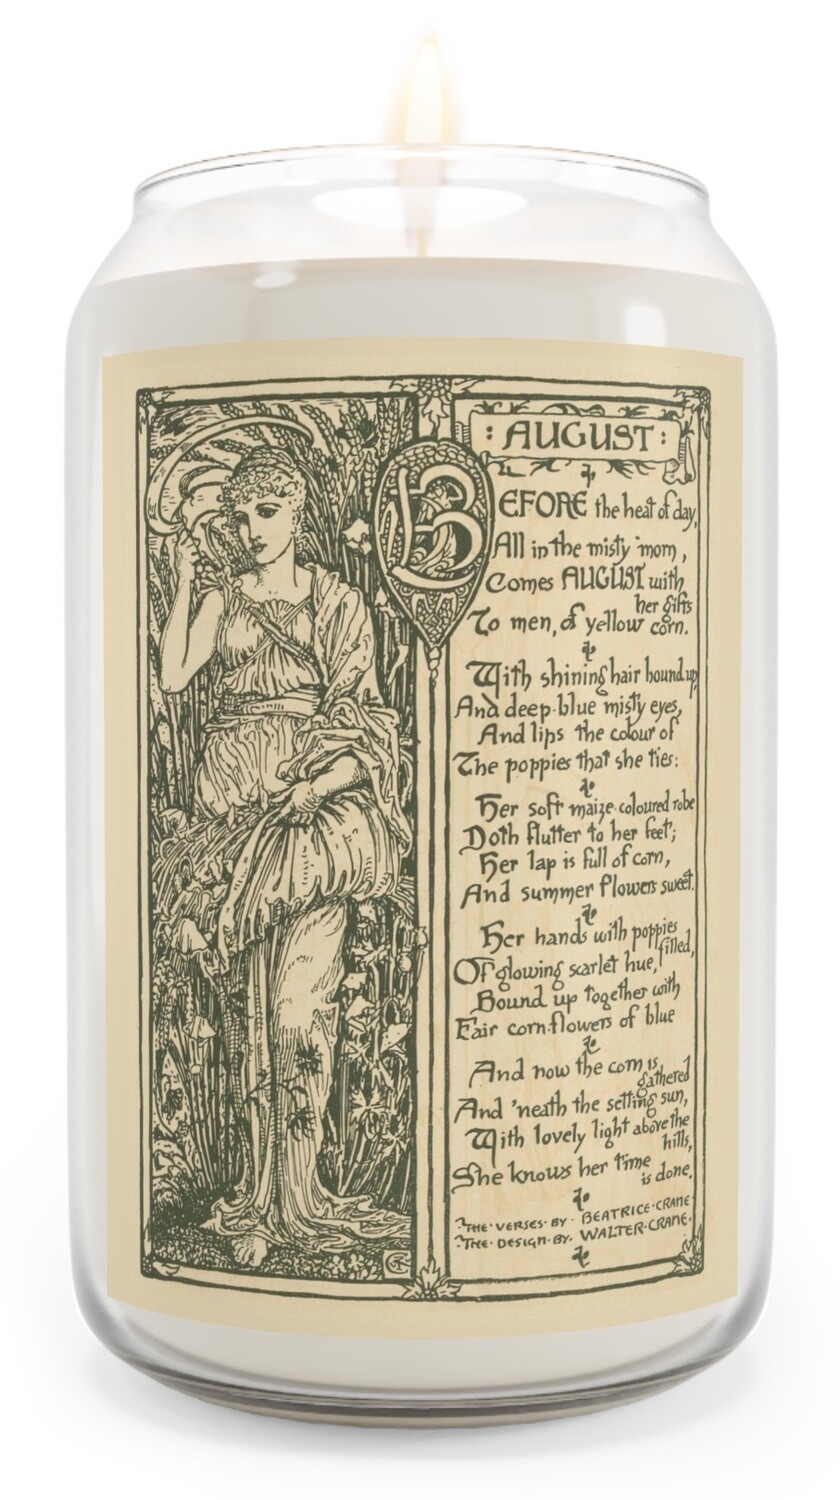 : AUGUST :
BEFORE the heat of day,
All in the misty morn,
Comes AUGUST with
her gifts
To men, of yellow corn.
With shining hair bound up,
And deep-blue misty eyes,
And lips the colour of
The poppies that she ties:
Her soft maize-coloured robe
Doth flutter to her feet;
Her lap is full of corn,
And summer flowers sweet.
Her hands with poppies
filled,
Of glowing scarlet hue,
Bound up together with
Fair corn-flowers of blue
And now the corn is
gathered
And 'neath the setting sun,
With lovely light above the
hills,
She knows her time
is done.
THE·VERSES·BY·BEATRICE·CRANE
THE·DESIGN·BY·WALTER·CRANE·